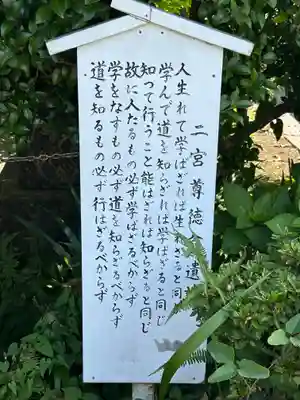 二宮尊徳遺
人生れて学ばざれば生れざると同
学んで道を知らざれば学ばざると同じ
知って行うこと能はざれば知らざると同じ
故に人たるもの必ず学ばざるべからず
学をなすもの必ず道を知らざるべからず
道を知るもの必ず行はざるべからず